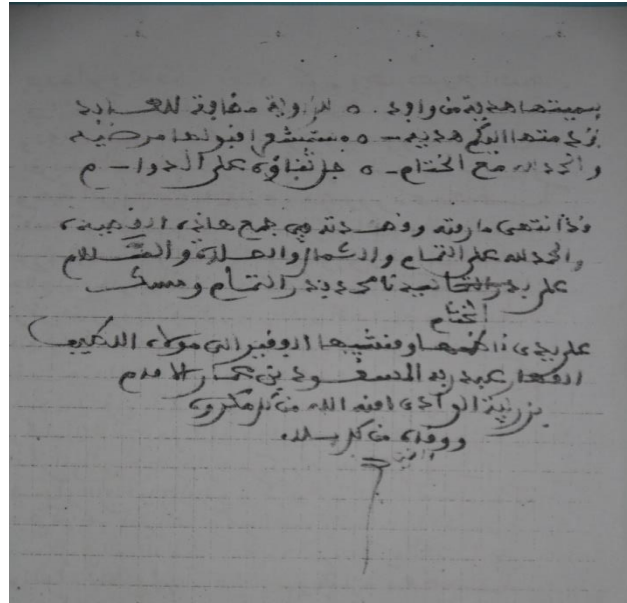 سميتها هدية من واجد ه للزاوية مضافة للعابد
قدمتها اليكم هديه ه مستشعرا قبولها مرضيه
والحمد لله مع الختام ه جل ثناؤه على الدوام
قد انتهى ما رمته وقصدته في جمع هاذه الارجوزة
والحمد لله على التمام والشمال والصلاة والسلام
على بدر سيدنا محمد بدر التمام ومسك
الختام
على يدي ناظمها ومنشيها الفقير الى مولاه اللطيف
القهار عبد ربه المسعود بن عمار الاقدم
بزريبة الوادي امنه الله من كل مكروه
ووقاه من كل بلاء